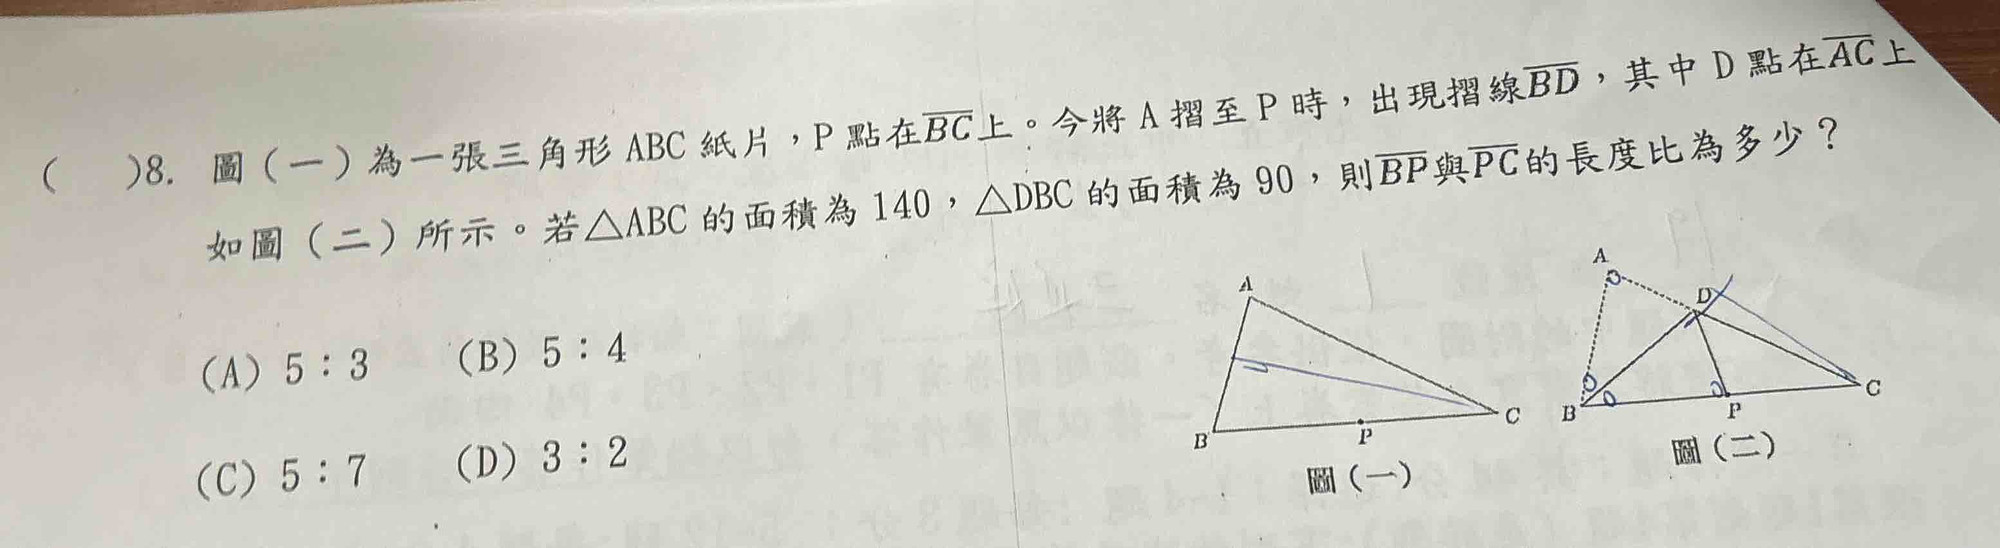 (　)8. 圖(一)為一張三角形 ABC 紙片，P 點在BC上。今將 A 摺至 P 時，出現摺線BD，其中 D 點在AC上
如圖(二)所示。若△ABC 的面積為 140，△DBC 的面積為 90，則BP與PC的長度比為多少？
(A) 5：3 (B) 5：4
(C) 5：7 (D) 3：2
A
B
P
C
圖(一)
A
D
B
P
C
圖(二)